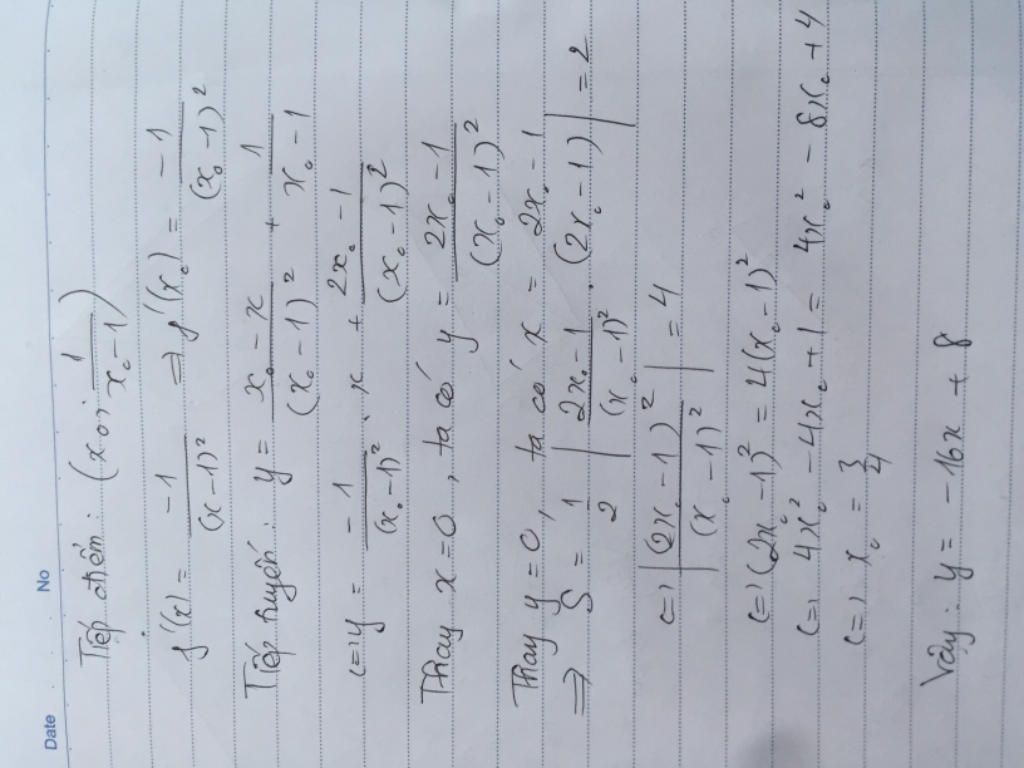 Date No
Tiếp điểm: (x₀; 1/(x₀-1))
f'(x) = -1/(x-1)² ⇒ f'(x₀) = -1/(x₀-1)²
Tiếp tuyến: y = (x₀-x)/(x₀-1)² + 1/(x₀-1)
<=> y = -1/(x₀-1)² . x + (2x₀-1)/(x₀-1)²
Thay x=0, ta có y = (2x₀-1)/(x₀-1)²
Thay y=0, ta có x = 2x₀-1
⇒ S = 1/2 |(2x₀-1)/(x₀-1)² . (2x₀-1)| = 2
<=> |(2x₀-1)²/(x₀-1)²| = 4
<=> (2x₀-1)² = 4(x₀-1)²
<=> 4x₀² - 4x₀ + 1 = 4x₀² - 8x₀ + 4
<=> x₀ = 3/4
Vậy: y = -16x + 8